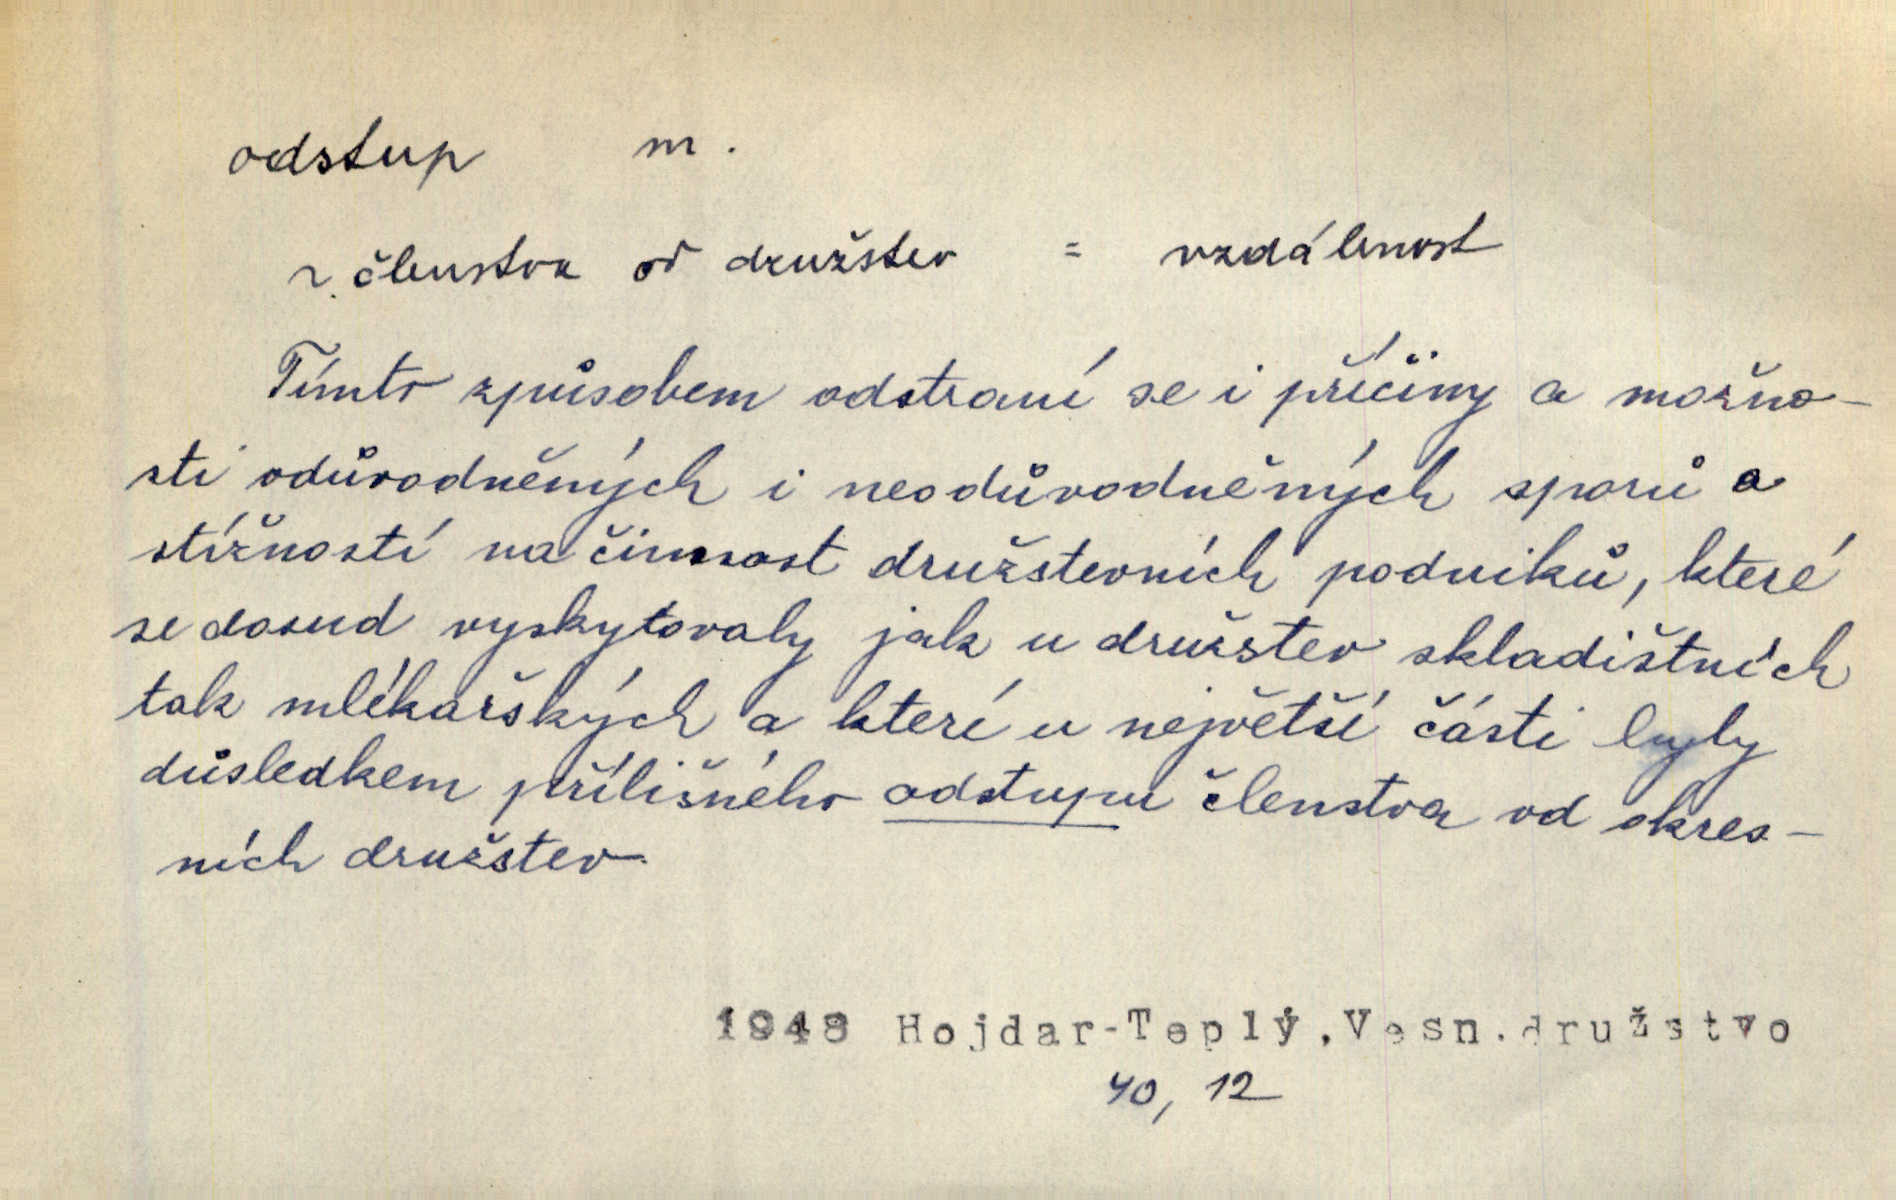 odstup m.
~ členstva od družstev = vzdálenost
Tímto způsobem odstraní se i příčiny a možno-
sti odůvodněných i neodůvodněných sporů a
stížností na činnost družstevních podniků, které
se dosud vyskytovaly jak u družstev skladištních
tak mlékařských a které u největší části byly
důsledkem přílišného odstupu členstva od okres-
ních družstev
1948 Hojdar-Teplý,Vesn.družstvo
40, 12